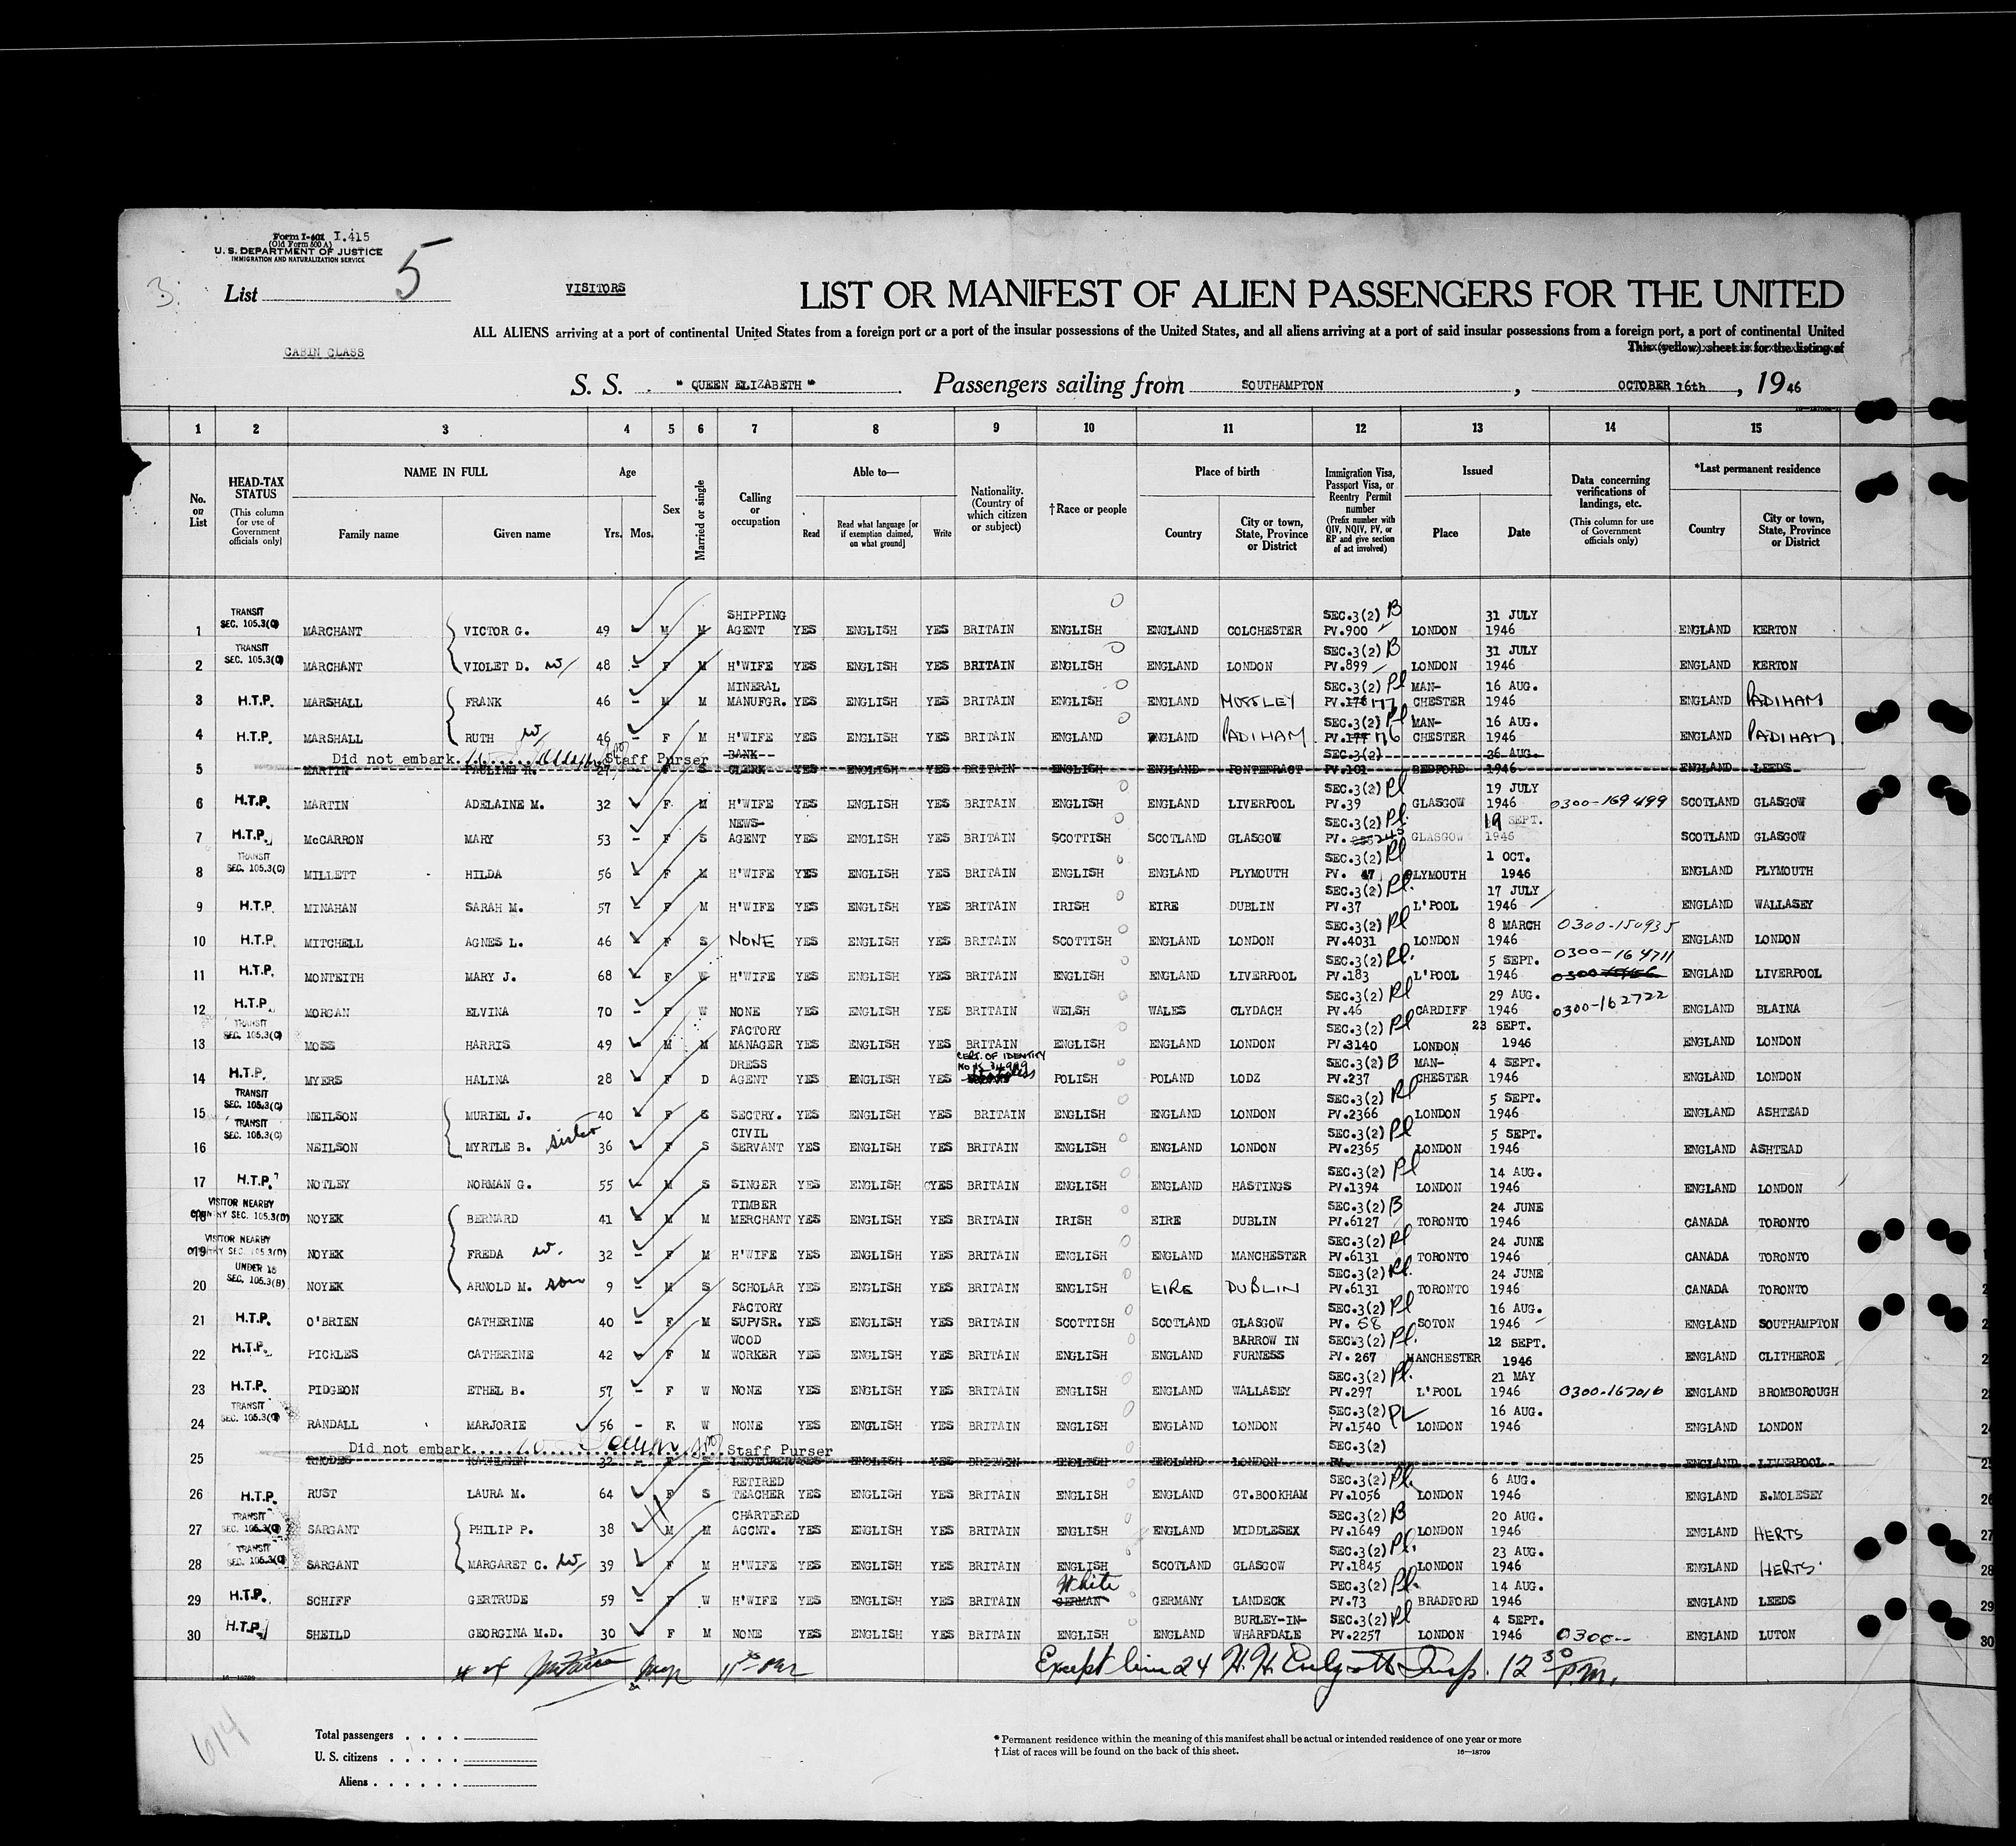 Form I-401 I.415
(Old Form 500 A)
U. S. DEPARTMENT OF JUSTICE
IMMIGRATION AND NATURALIZATION SERVICE
List 5
VISITORS
LIST OR MANIFEST OF ALIEN PASSENGERS FOR THE UNITED
ALL ALIENS arriving at a port of continental United States from a foreign port or a port of the insular possessions of the United States, and all aliens arriving at a port of said insular possessions from a foreign port, a port of continental United
CABIN CLASS
This (yellow) sheet is for the listing of
S. S. " QUEEN ELIZABETH " Passengers sailing from SOUTHAMPTON , OCTOBER 16th , 1946
1 2 3 4 5 6 7 8 9 10 11 12 13 14 15
No. on List
HEAD-TAX STATUS (This column for use of Government officials only)
NAME IN FULL Family name Given name
Age Yrs. Mos.
Sex
Married or single
Calling or occupation
Able to— Read Read what language [or if exemption claimed, on what ground] Write
Nationality. (Country of which citizen or subject)
†Race or people
Place of birth Country City or town, State, Province or District
Immigration Visa, Passport Visa, or Reentry Permit number (Prefix number with QIV, NQIV, PV, or RP and give section of act involved)
Issued Place Date
Data concerning verifications of landings, etc. (This column for use of Government officials only)
*Last permanent residence Country City or town, State, Province or District
1 TRANSIT SEC. 105.3(C) MARCHANT VICTOR G. 49 M M SHIPPING AGENT YES ENGLISH YES BRITAIN ENGLISH ENGLAND COLCHESTER SEC.3(2) B PV.900 LONDON 31 JULY 1946 ENGLAND KERTON
2 TRANSIT SEC. 105.3(C) MARCHANT VIOLET D. w/ 48 F M H'WIFE YES ENGLISH YES BRITAIN ENGLISH ENGLAND LONDON SEC.3(2) B PV.899 LONDON 31 JULY 1946 ENGLAND KERTON
3 H.T.P. MARSHALL FRANK 46 M M MINERAL MANUFGR. YES ENGLISH YES BRITAIN ENGLISH ENGLAND MOSSLEY SEC.3(2) Pl PV.176 177 MAN-CHESTER 16 AUG. 1946 ENGLAND PADIHAM
4 H.T.P. MARSHALL RUTH w/ 46 F M H'WIFE YES ENGLISH YES BRITAIN ENGLAND ENGLAND PADIHAM SEC.3(2) Pl PV.177 176 MAN-CHESTER 16 AUG. 1946 ENGLAND PADIHAM
Did not embark Staff Purser
5 MARTIN PAULINE R. 27 F S BANK CLERK YES ENGLISH YES BRITAIN ENGLISH ENGLAND PONTEFRACT SEC.3(2) PV.101 BEDFORD 26 AUG. 1946 ENGLAND LEEDS
6 H.T.P. MARTIN ADELAINE M. 32 F M H'WIFE YES ENGLISH YES BRITAIN ENGLISH ENGLAND LIVERPOOL SEC.3(2) Pl PV.39 GLASGOW 19 JULY 1946 0300-169499 SCOTLAND GLASGOW
7 H.T.P. McCARRON MARY 53 F S NEWS-AGENT YES ENGLISH YES BRITAIN SCOTTISH SCOTLAND GLASGOW SEC.3(2) Pl. PV. 245 GLASGOW 19 SEPT. 1946 SCOTLAND GLASGOW
8 TRANSIT SEC. 105.3(C) MILLETT HILDA 56 F M H'WIFE YES ENGLISH YES BRITAIN ENGLISH ENGLAND PLYMOUTH SEC.3(2) Pl PV. 47 PLYMOUTH 1 OCT. 1946 ENGLAND PLYMOUTH
9 H.T.P. MINAHAN SARAH M. 57 F M H'WIFE YES ENGLISH YES BRITAIN IRISH EIRE DUBLIN SEC.3(2) Pl. PV.37 L'POOL 17 JULY 1946 ENGLAND WALLASEY
10 H.T.P. MITCHELL AGNES L. 46 F S NONE YES ENGLISH YES BRITAIN SCOTTISH ENGLAND LONDON SEC.3(2) Pl PV.4031 LONDON 8 MARCH 1946 0300-150935 ENGLAND LONDON
11 H.T.P. MONTEITH MARY J. 68 F W H'WIFE YES ENGLISH YES BRITAIN ENGLISH ENGLAND LIVERPOOL SEC.3(2) Pl. PV.183 L'POOL 5 SEPT. 1946 0300-164711 ENGLAND LIVERPOOL
12 H.T.P. MORGAN ELVINA 70 F W NONE YES ENGLISH YES BRITAIN WELSH WALES CLYDACH SEC.3(2) Pl PV.46 CARDIFF 29 AUG. 1946 0300-162722 ENGLAND BLAINA
13 TRANSIT SEC. 105.3(C) MOSS HARRIS 49 M M FACTORY MANAGER YES ENGLISH YES BRITAIN ENGLISH ENGLAND LONDON SEC.3(2) Pl PV.3140 LONDON 23 SEPT. 1946 ENGLAND LONDON
14 H.T.P. MYERS HALINA 28 F D DRESS AGENT YES ENGLISH YES CERT. OF IDENTITY Stateless POLISH POLAND LODZ SEC.3(2) B PV.237 MAN-CHESTER 4 SEPT. 1946 ENGLAND LONDON
15 TRANSIT SEC. 105.3(C) NEILSON MURIEL J. 40 F S SECTRY. YES ENGLISH YES BRITAIN ENGLISH ENGLAND LONDON SEC.3(2) Pl PV.2366 LONDON 5 SEPT. 1946 ENGLAND ASHTEAD
16 TRANSIT SEC. 105.3(C) NEILSON MYRTLE B. sister 36 F S CIVIL SERVANT YES ENGLISH YES BRITAIN ENGLISH ENGLAND LONDON SEC.3(2) Pl PV.2365 LONDON 5 SEPT. 1946 ENGLAND ASHTEAD
17 H.T.P. NOTLEY NORMAN G. 55 M S SINGER YES ENGLISH YES BRITAIN ENGLISH ENGLAND HASTINGS SEC.3(2) Pl PV.1394 LONDON 14 AUG. 1946 ENGLAND LONDON
18 VISITOR NEARBY COUNTRY SEC. 105.3(D) NOYEK BERNARD 41 M M TIMBER MERCHANT YES ENGLISH YES BRITAIN IRISH EIRE DUBLIN SEC.3(2) B PV.6127 TORONTO 24 JUNE 1946 CANADA TORONTO
19 VISITOR NEARBY COUNTRY SEC. 105.3(D) NOYEK FREDA w. 32 F M H'WIFE YES ENGLISH YES BRITAIN ENGLISH ENGLAND MANCHESTER SEC.3(2) Pl PV.6131 TORONTO 24 JUNE 1946 CANADA TORONTO
20 UNDER 16 SEC. 105.3(B) NOYEK ARNOLD M. son 9 M S SCHOLAR YES ENGLISH YES BRITAIN ENGLISH EIRE DUBLIN SEC.3(2) Pl. PV.6131 TORONTO 24 JUNE 1946 CANADA TORONTO
21 H.T.P. O'BRIEN CATHERINE 40 F M FACTORY SUPVSR. YES ENGLISH YES BRITAIN SCOTTISH SCOTLAND GLASGOW SEC.3(2) Pl PV. 58 SOTON 16 AUG. 1946 ENGLAND SOUTHAMPTON
22 H.T.P. PICKLES CATHERINE 42 F M WOOD WORKER YES ENGLISH YES BRITAIN ENGLISH ENGLAND BARROW IN FURNESS SEC.3(2) Pl. PV. 267 MANCHESTER 12 SEPT. 1946 ENGLAND CLITHEROE
23 H.T.P. PIDGEON ETHEL B. 57 F W NONE YES ENGLISH YES BRITAIN ENGLISH ENGLAND WALLASEY SEC.3(2) Pl. PV.297 L'POOL 21 MAY 1946 0300-167016 ENGLAND BROMBOROUGH
24 TRANSIT SEC. 105.3(C) RANDALL MARJORIE 56 F. W NONE YES ENGLISH YES BRITAIN ENGLISH ENGLAND LONDON SEC.3(2) PL PV.1540 LONDON 16 AUG. 1946 ENGLAND LONDON
Did not embark Staff Purser
25 RHODES KATHLEEN 32 F S LECTURER YES ENGLISH YES BRITAIN ENGLISH ENGLAND LONDON SEC.3(2) PV. ENGLAND LIVERPOOL
26 H.T.P. RUST LAURA M. 64 F S RETIRED TEACHER YES ENGLISH YES BRITAIN ENGLISH ENGLAND GT.BOOKHAM SEC.3(2) Pl. PV.1056 LONDON 6 AUG. 1946 ENGLAND E.MOLESEY
27 TRANSIT SEC. 105.3(C) SARGANT PHILIP P. 38 M M CHARTERED ACCNT. YES ENGLISH YES BRITAIN ENGLISH ENGLAND MIDDLESEX SEC.3(2) B PV.1649 LONDON 20 AUG. 1946 ENGLAND HERTS
28 TRANSIT SEC. 105.3(C) SARGANT MARGARET C. w/ 39 F M H'WIFE YES ENGLISH YES BRITAIN ENGLISH SCOTLAND GLASGOW SEC.3(2) Pl. PV.1845 LONDON 23 AUG. 1946 ENGLAND HERTS
29 H.T.P. SCHIFF GERTRUDE 59 F W H'WIFE YES ENGLISH YES BRITAIN White GERMAN GERMANY LANDECK SEC.3(2) Pl. PV.73 BRADFORD 14 AUG. 1946 ENGLAND LEEDS
30 H.T.P. SHEILD GEORGINA M.D. 30 F M NONE YES ENGLISH YES BRITAIN ENGLISH ENGLAND BURLEY-IN-WHARFDALE SEC.3(2) Pl PV.2257 LONDON 4 SEPT. 1946 0300-- ENGLAND LUTON
Except line 24 Insp. 12 30 P.M.
16—18709
614
Total passengers
U. S. citizens
Aliens
* Permanent residence within the meaning of this manifest shall be actual or intended residence of one year or more
† List of races will be found on the back of this sheet.
16—18709